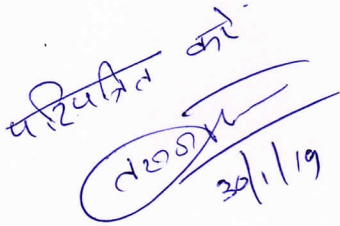 परिपत्रित करें
30/1/19